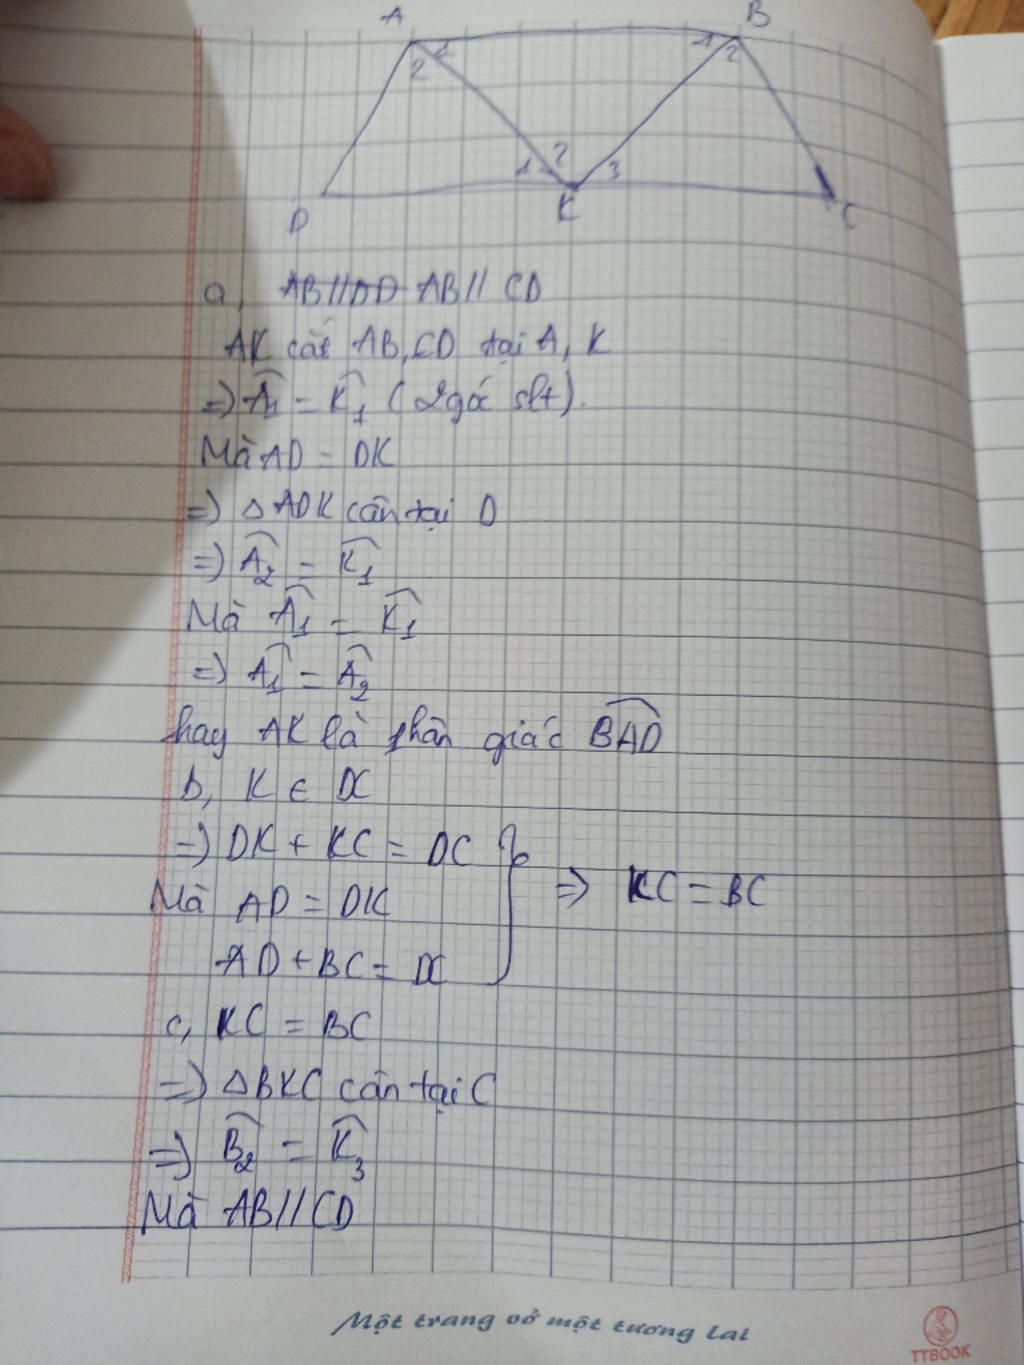 A B
1 1
2 2
2
1 3
D K C
a, AB//DD AB// CD
AK cắt AB, CD tại A, K
=) Â1 = K̂1 (2 góc slt).
Mà AD = DK
=) △ADK cân tại D
=) Â2 = K̂1
Mà Â1 = K̂1
=) Â1 = Â2
hay AK là phân giác BAD
b, K ∈ DC
=) DK + KC = DC
=) KC = BC
Mà AD = DK
AD + BC = DC
c, KC = BC
=) △BKC cân tại C
=) B̂2 = K̂3
Mà AB//CD
Một trang vở một tương lai
TTBOOK